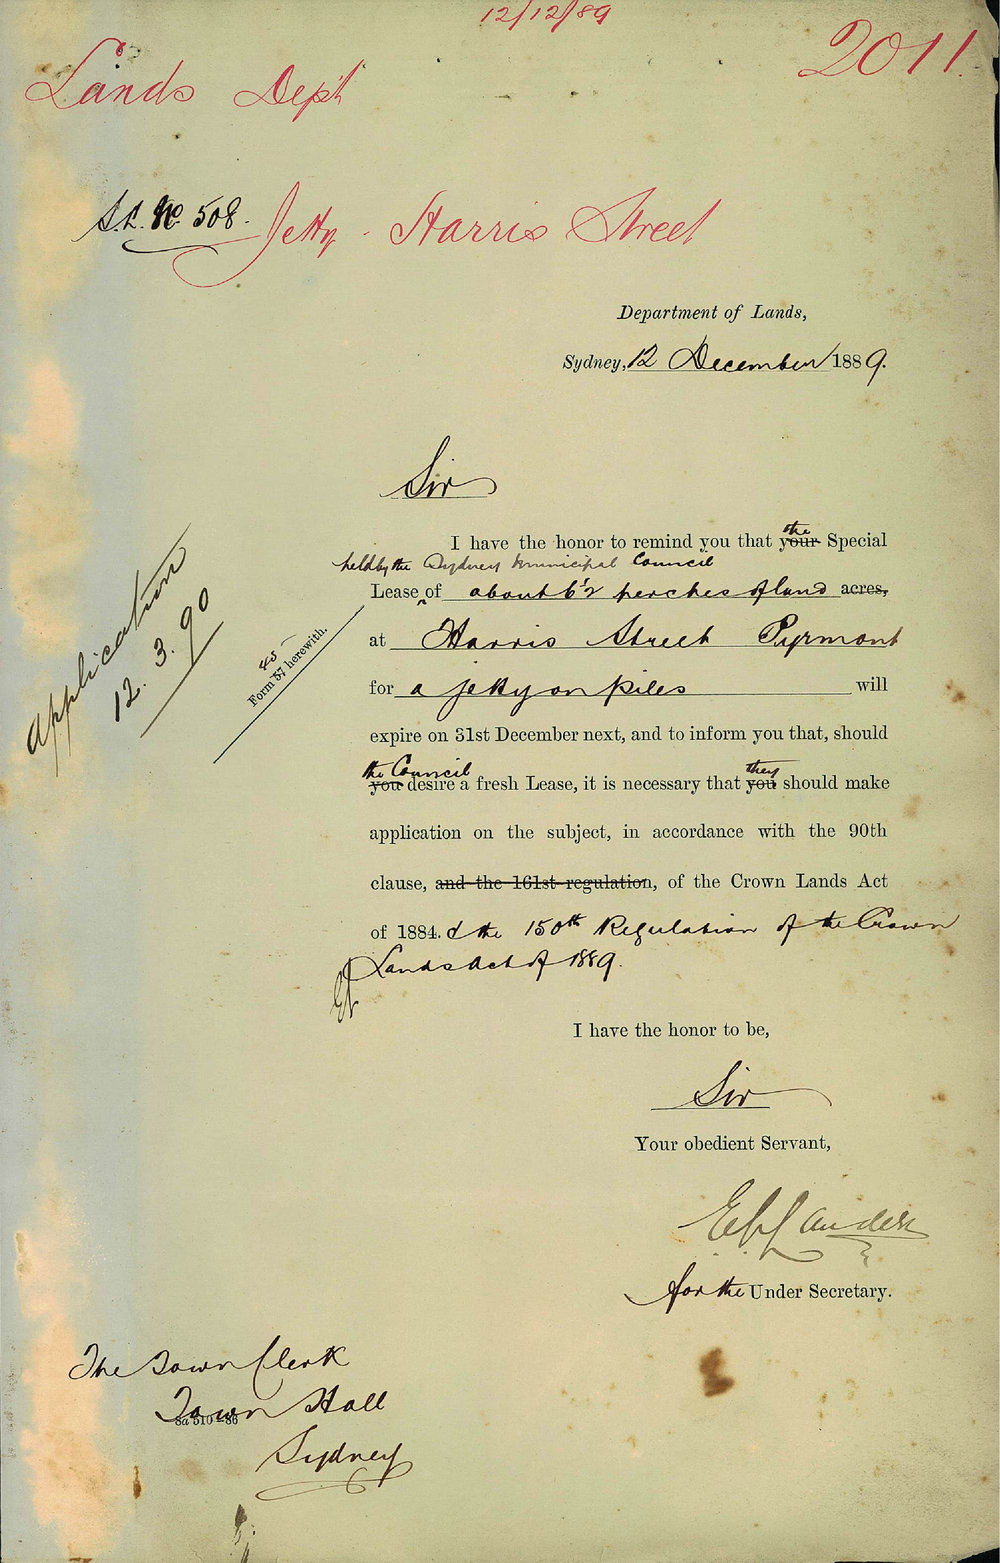 12/12/89
2011.
Lands Dept
S.L. No. 508. Jetty - Harris Street
Department of Lands,
Sydney, 12 December 1889.
Sir
I have the honor to remind you that your the Special
held by the Sydney Municipal Council
Lease of about 6½ perches of land acres,
at Harris Street Pyrmont
for a jetty on piles will
expire on 31st December next, and to inform you that, should
the Council they
you desire a fresh Lease, it is necessary that you should make
application on the subject, in accordance with the 90th
clause, and the 161st regulation, of the Crown Lands Act
of 1884. & the 150th Regulation of the Crown
Lands Act of 1889.
45
Form 57 herewith.
Application
12.3.90
I have the honor to be,
Sir
Your obedient Servant,
for the Under Secretary.
The Town Clerk
Town Hall
8a 510—86
Sydney